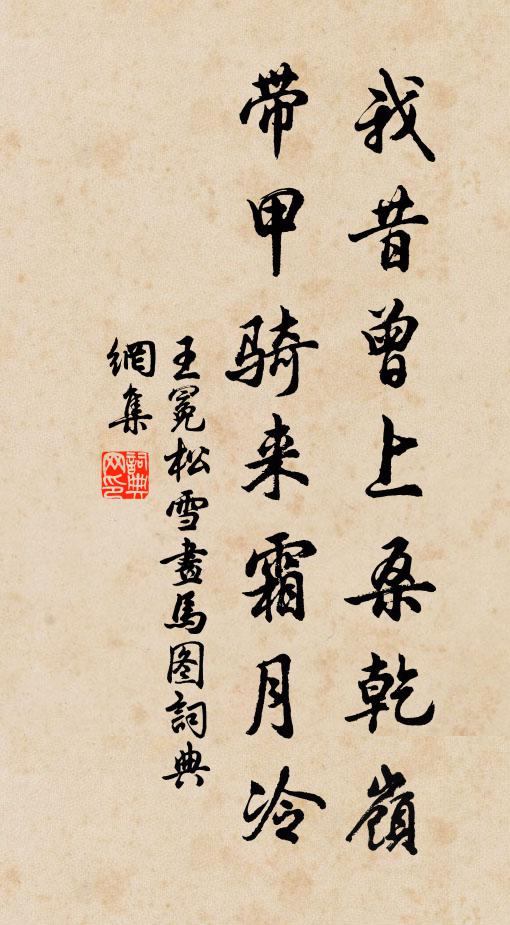 我昔曾上桑乾嶺
带甲骑来霜月冷
王冕松雪畫馬图詞典
網集
詞典网印